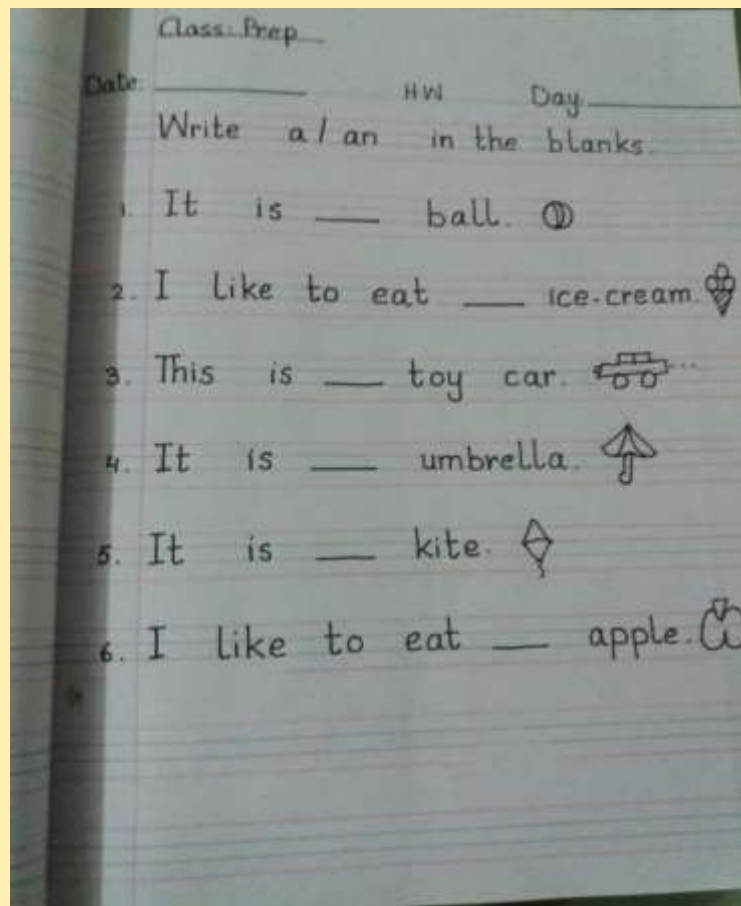 Class: Prep
Date: __________ HW Day __________
Write a / an in the blanks.
1. It is ___ ball.
2. I like to eat ___ ice-cream.
3. This is ___ toy car.
4. It is ___ umbrella.
5. It is ___ kite.
6. I like to eat ___ apple.